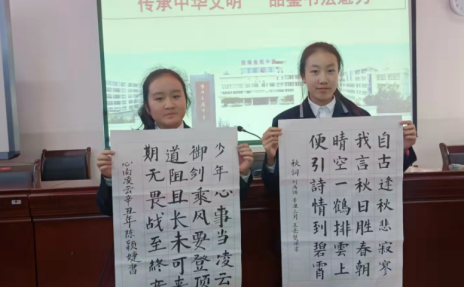 传承中华文明 品鉴书法魅力
少年心事当凌云
御剑乘风要登顶
道阻且长未可
期无畏战至终章
心向凌云辛丑年陈颖书
自古逢秋悲寂寥
我言秋日胜春朝
晴空一鹤排雲上
便引詩情到碧霄
秋詞